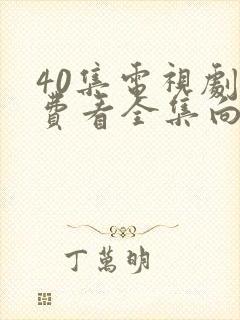 40集電視劇
費看全集向
丁萬明